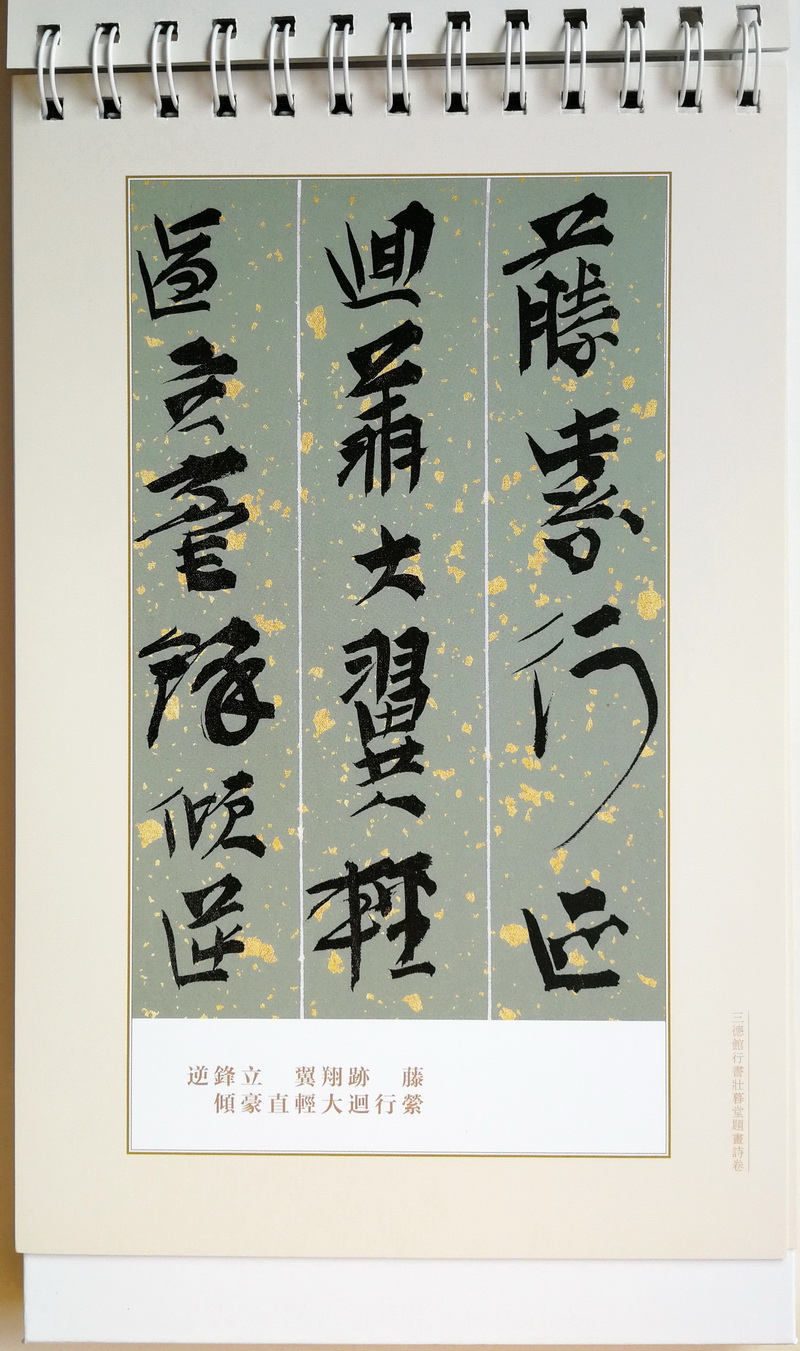 藤縈行跡
迴翔大翼輕
直立豪鋒傾逆
藤縈行跡迴翔大翼輕直立豪鋒傾逆
三德館行書壯暮堂題畫詩卷